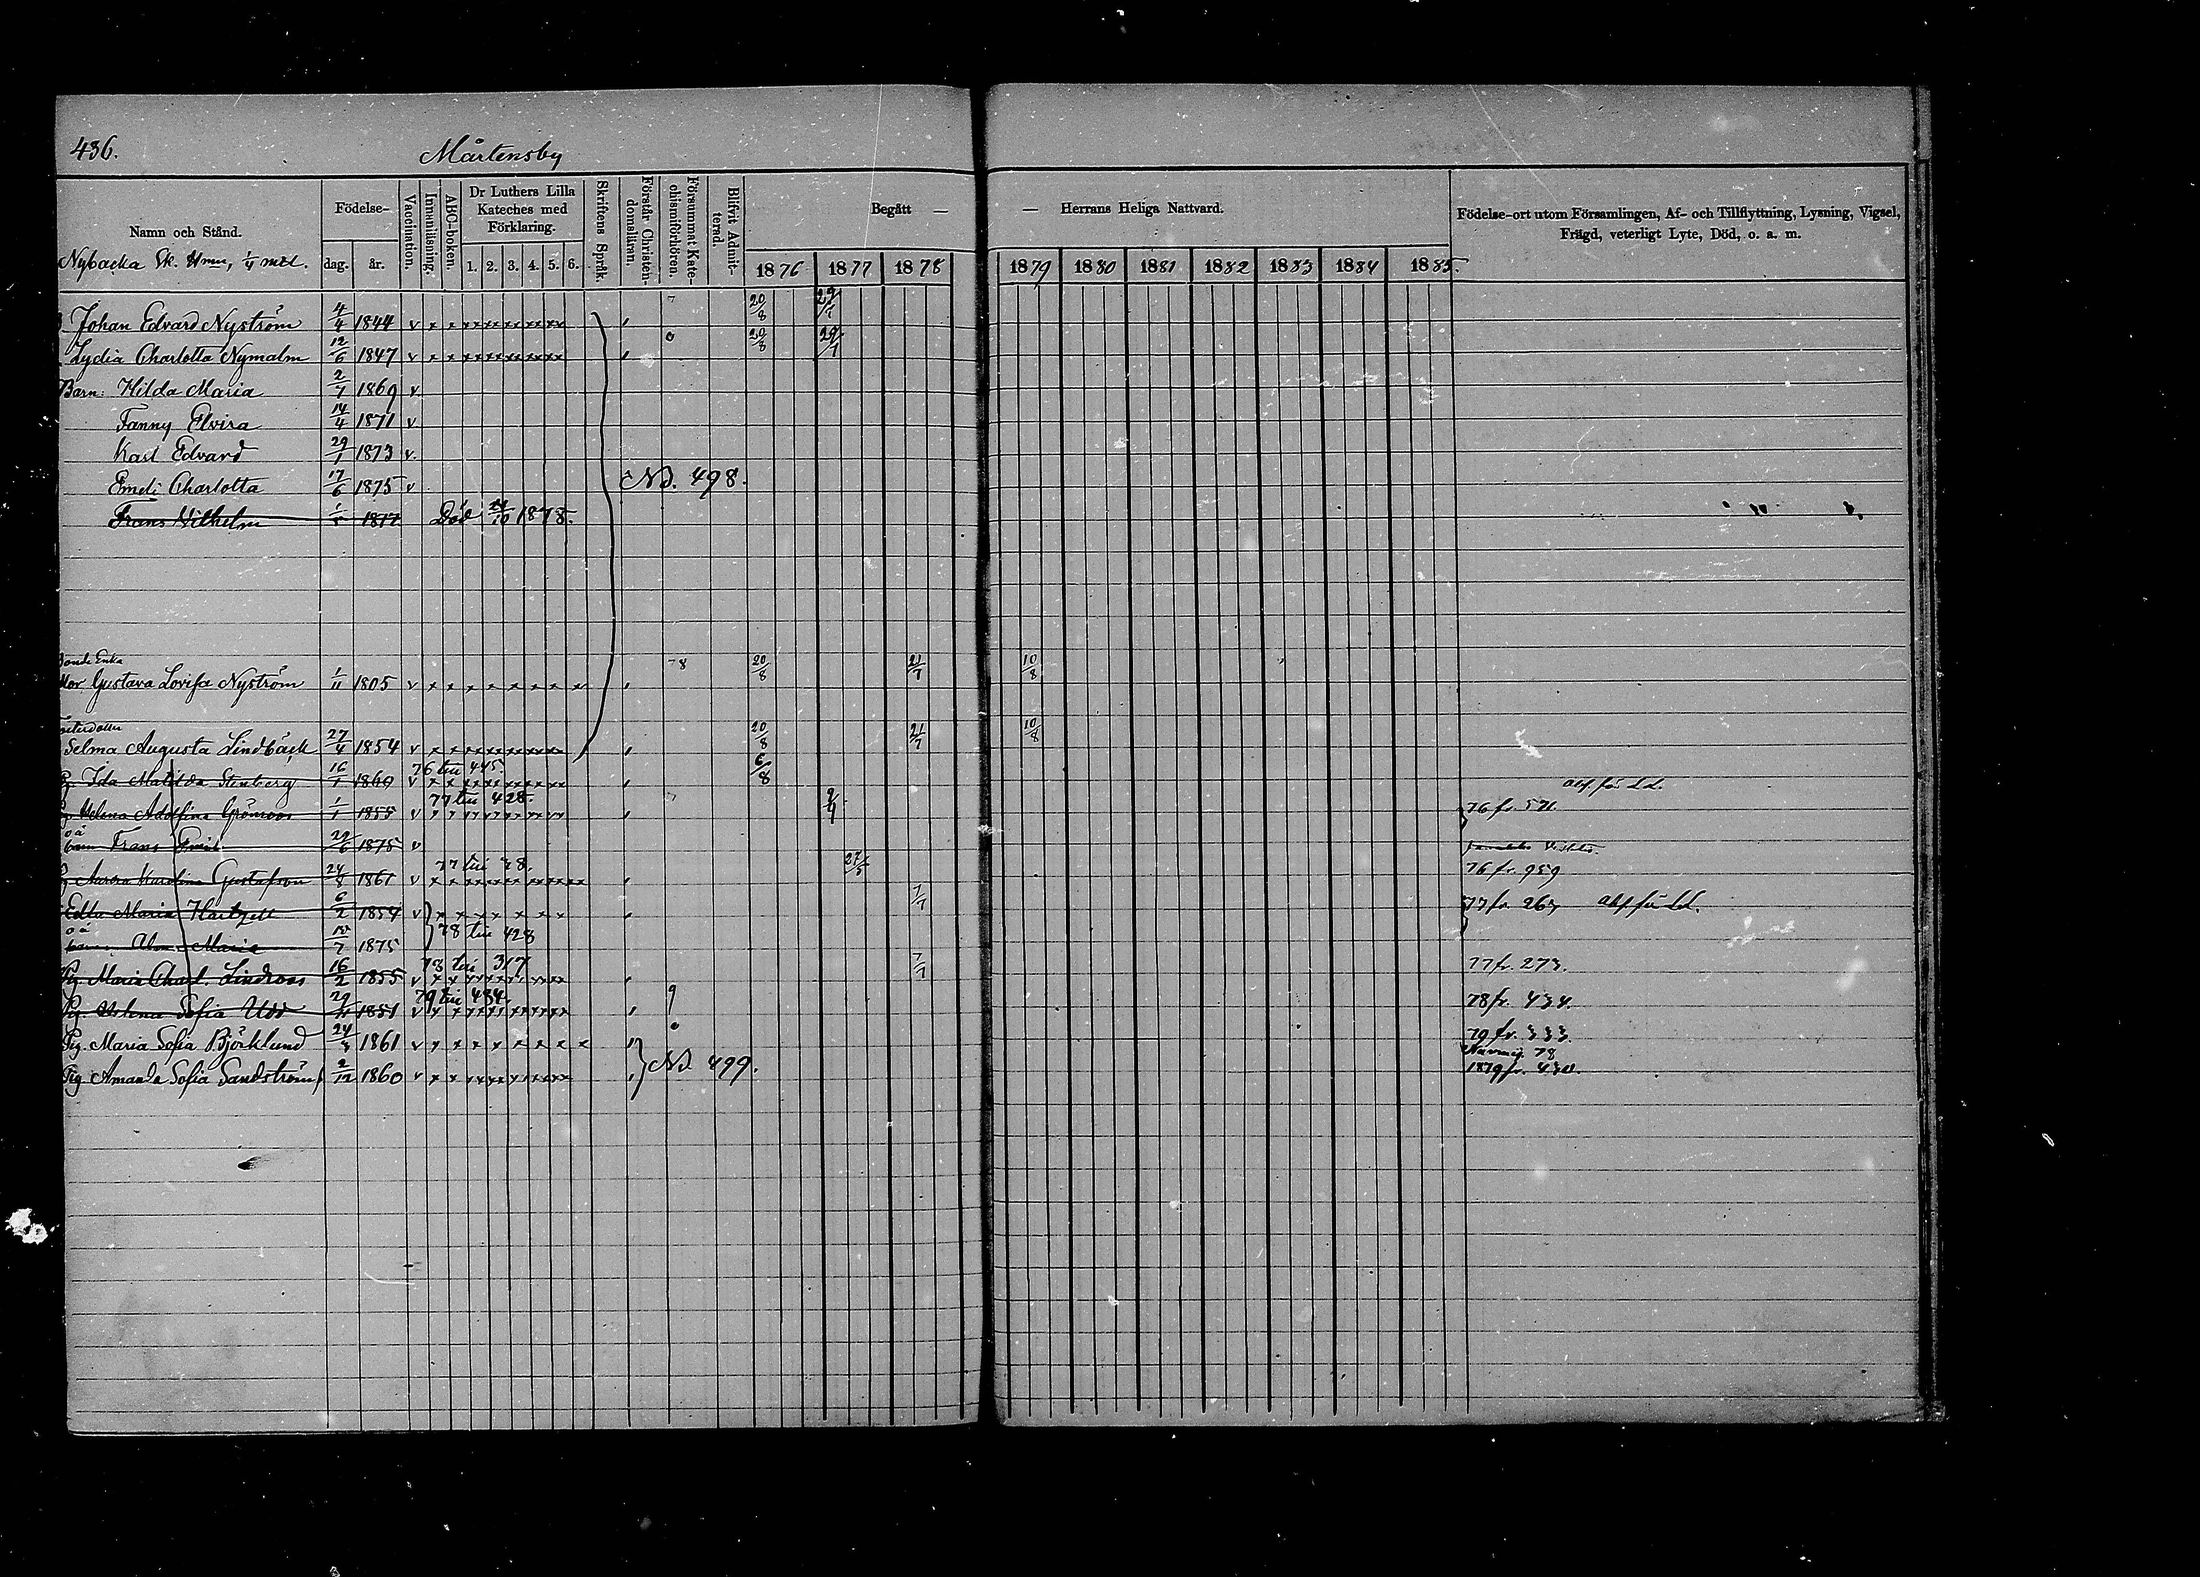 436. Mårtensby
Namn och Stånd. Födelse- dag. år. Vaccination. Innanläsning. ABC-boken. Dr Luthers Lilla Kateches med Förklaring. 1. 2. 3. 4. 5. 6. Skriftens Språk. Förstår Christendomsläran. Försummat Katechismiförhören. Blifvit Admitterad. Begått — — Herrans Heliga Nattvard. Födelse-ort utom Församlingen, Af- och Tillflyttning, Lysning, Vigsel, Frägd, veterligt Lyte, Död, o. a. m.
1876 1877 1878 1879 1880 1881 1882 1883 1884 1885.
Nybacka Sk. Hmn, 1/4 mtl.
Johan Edvard Nyström 4/4 1844 v 7 20/8 29/7
Lydia Charlotta Nymalm 12/6 1847 v 0 20/8 29/7
Barn: Hilda Maria 2/7 1869 v.
Fanny Elvira 14/4 1871 v
Karl Edvard 29/1 1873 v.
Emeli Charlotta 17/6 1875 v Nb. 498.
Frans Vilhelm 1877 Död 1878.
Bonde Enka
Mor Gustava Lovisa Nyström 1/11 1805 v 78 20/8 21/7 10/8
Selma Augusta Lindbäck 27/4 1854 v 20/8 21/7 10/8
76 till 445
Ida Matilda Stenberg 16/1 1860 v 6/8 abs. för L.L.
77 till 428.
Helena Adolfina Grönroos 1/1 1855 v 7 76 fr. 571.
o ä
barn Frans Emil 29/6 1875 v
77 till 78. 27/5
Aurora Karolina Gustafson 24/8 1861 v 76 fr. 959
Edla Maria 6/2 1854 v 7/7 77 fr. 267 abs. för L.L.
o ä 78 till 428
Maria 1875
78 till 317
Pig. Maria Charl. Lindroos 16/2 1855 v 7/7 77 fr. 273.
79 till 434.
Pig. Helena Sofia Udd 1851 v 9 78 fr. 434.
Pig. Maria Sofia Björklund 24/3 1861 v 79 fr. 333.
Nb 499.
Pig Amanda Sofia Sandström 2/12 1860 v 1879 fr. 430.